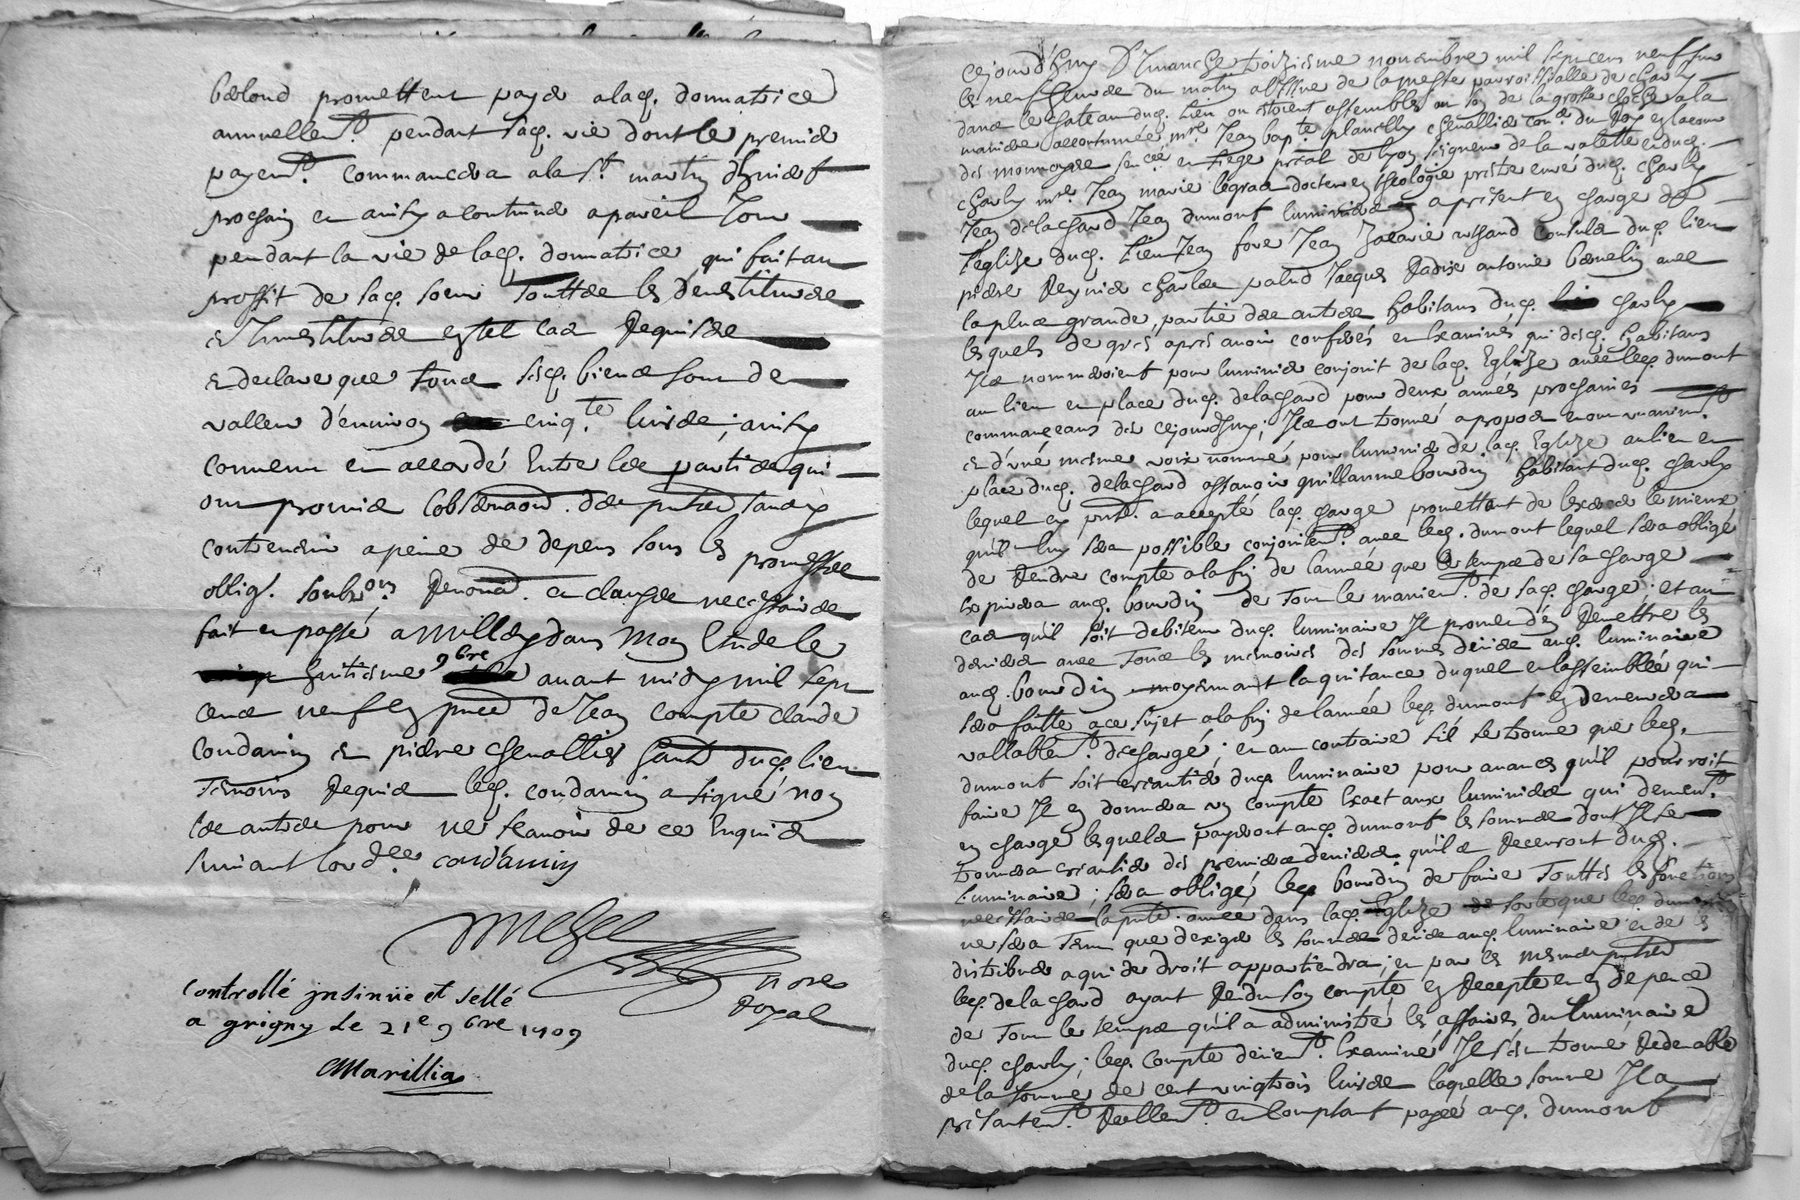 beloud promettent payer a lad. donnatrice
annuellemt. pendant sad. vie dont le premier
payemt. commancera a la st. martin d'hiver
prochain et ainsy a continuer a pareil jour
pendant la vie de lad. donnatrice qui fait au
proffit de sad. soeur touttes les devestitures
et Investitures en tel cas Requises
et declare que tous sesd. biens sont de
valleur d'environ cinqte. livres; ainsy
convenu et accordé Entre les parties qui
ont promis lobservaon. des presentes sans y
contrevenir a peine de depens sous les promesses
obligs. soubmons Renonaons. et clauses necessaires
fait et passé a millery dans mon Etude le
huitiesme 9bre avant midy mil sept
cens neuf en pnce de Jean compte claude
Condamin et pierre chevallier habts. dud. lieu
Temoins Requis led. condamin a signé non
les autres pour ne scavoir de ce Enquis
suivant lordce condamin
nore
Royal
Controllé jnsinüé et sellé
a grigny le 21e 9bre 1709
Marillia
Cejourd'huy Dimanche troiziesme novembre mil sept cens neuf sur
les neuf heures du matin a l'issue de la messe parroissialle de charly
dans le chateau dud. lieu ou estoient assemblés au son de la grosse cloche a la
maniere accoutumée, mre Jean bapte. planelly chevallier coner. du Roy en la cour
des monnoyes senée. et siege preal de lyon seigneur de la valette et dud.
charly mre. Jean marie legras docteur en theologie prestre curé dud. charly
Jean delachard Jean dumont luminiers a present en charge de
l'eglize dud. lieu Jean fore Jean Zacarie rithaud consuls dud. lieu
pierre Reynier charles palud Jacques Radix antoine bernelin avec
la plus grande partie des autres habitans dud. charly
lesquels de grés apres avoir conferés et Examinés qui desd. habitans
Ils nommeroient pour luminier conjoint de lad. Eglize avec led. dumont
au lieu et place dud. delachard pour deux années prochaines
commançans des cejourdhuy, Ils ont trouvé a propos et ont unanimt.
et d'une mesme voix nommé pour luminier de lad. Eglize au lieu et
place dud. delachard assavoir guillaume bourdin habitant dud. charly
lequel cy pnt. a accepté lad. charge promettant de lexercer le mieux
qu'il luy sera possible conjointemt. avec led. dumont lequel sera obligé
de Rendre compte a la fin de l'année que le temps de sa charge
Expirera aud. bourdin de tout le maniemt. de sad. charge; et au
cas qu'il soit debiteur dud. luminaire Il promet d'en Remettre les
deniers avec tous les memoires des sommes deües aud. luminaire
aud. bourdin moyennant la quitance duquel et lassemblée qui
sera faitte a ce sujet a la fin de lannée led. dumont en demeurera
vallablemt. dechargé; et au contraire s'il se trouve que led.
dumont soit creantier dud. luminaire pour avances qu'il pourroit
faire Il en donnera un compte Exact aux luminiers qui demeurt.
en charge lesquels payeront aud. dumont les sommes dont Il se
trouvera creantier des premiers deniers qu'ils Recevront dud.
luminaire; sera obligé led. bourdin de faire Touttes les fonctions
necessaires la pnte. année dans lad. Eglize de sorte que led. dumont
ne sera Tenu que dexiger les sommes deües aud. luminaire et de les
distribuer a qui de droit appartiendra; et par les mesmes presentes
led. delachard ayant Rendu son compte en Recepte et en depence
de Tout le temps qu'il a administré les affaires du luminaire
dud. charly; led. compte deuemt. Examiné Il s'est trouvé Redevable
de la somme de cent vingtrois livres laquelle somme Il a
presentemt. Reellemt. et Comptant payée aud. dumont